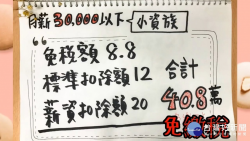 月薪30,000以下 小資族
免稅額 8.8
標準扣除額12
薪資扣除額20
合計
40.8萬
免繳稅